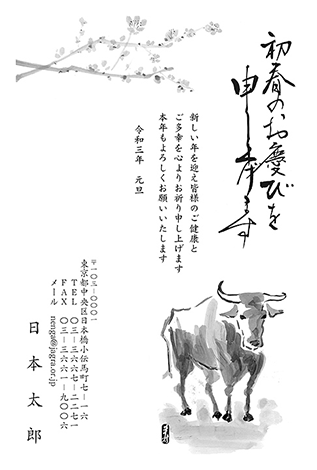 初春のお慶びを
申し上げます
新しい年を迎え皆様のご健康と
ご多幸を心よりお祈り申し上げます
本年もよろしくお願いいたします
令和三年　元旦
〒一〇三―〇〇〇一
東京都中央区日本橋小伝馬町七―一六
TEL　〇三―三六六七―二二七一
FAX　〇三―三六六一―九〇〇六
メール　nenga@jagra.or.jp
日本太郎